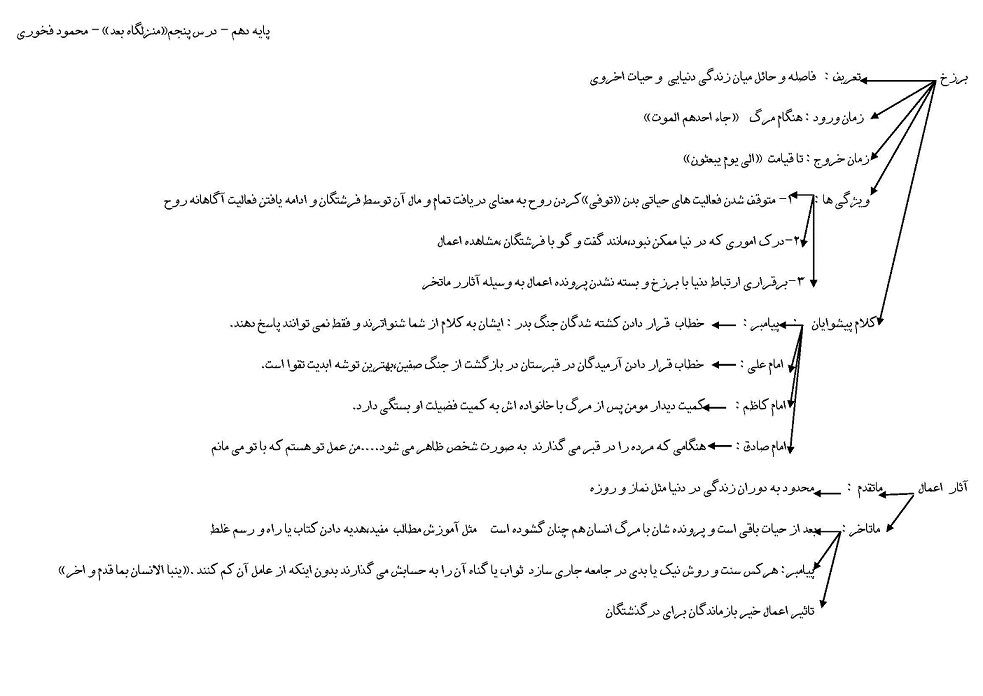 پایه دهم – درس پنجم«منزلگاه بعد» – محمود فخوری
برزخ تعریف : فاصله و حائل میان زندگی دنیایی و حیات اخروی
زمان ورود : هنگام مرگ «جاء احدهم الموت»
زمان خروج : تا قیامت «الی یوم یبعثون»
ویژگی ها : ۱- متوقف شدن فعالیت های حیاتی بدن «توفی»کردن روح به معنای دریافت تمام و مال آن توسط فرشتگان و ادامه یافتن فعالیت آگاهانه روح
۲-درک اموری که در نیا ممکن نبود،مانند گفت و گو با فرشتگان ،مشاهده اعمال
۳-برقراری ارتباط دنیا با برزخ و بسته نشدن پرونده اعمال به وسیله آثارر ماتخر
کلام پیشوایان : پیامبر : خطاب قرار دادن کشته شدگان جنگ بدر : ایشان به کلام از شما شنواترند و فقط نمی توانند پاسخ دهند.
امام علی : خطاب قرار دادن آرمیدگان در قبرستان در بازگشت از جنگ صفین،بهترین توشه ابدیت تقوا است.
امام کاظم : کمیت دیدار مومن پس از مرگ با خانواده اش به کمیت فضیلت او بستگی دارد.
امام صادق : هنگامی که مرده را در قبر می گذارند به صورت شخص ظاهر می شود....من عمل تو هستم که با تو می مانم
آثار اعمال ماتقدم : محدود به دوران زندگی در دنیا مثل نماز و روزه
ماتاخر : بعد از حیات باقی است و پرونده شان با مرگ انسان هم چنان گشوده است مثل آموزش مطالب مفید،هدیه دادن کتاب یا راه و رسم غلط
پیامبر : هر کس سنت و روش نیک یا بدی در جامعه جاری سازد ثواب یا گناه آن را به حسابش می گذارند بدون اینکه از عامل آن کم کنند .«ینبا الانسان بما قدم و اخر»
تاثیر اعمال خیر بازماندگان برای درگذشتگان